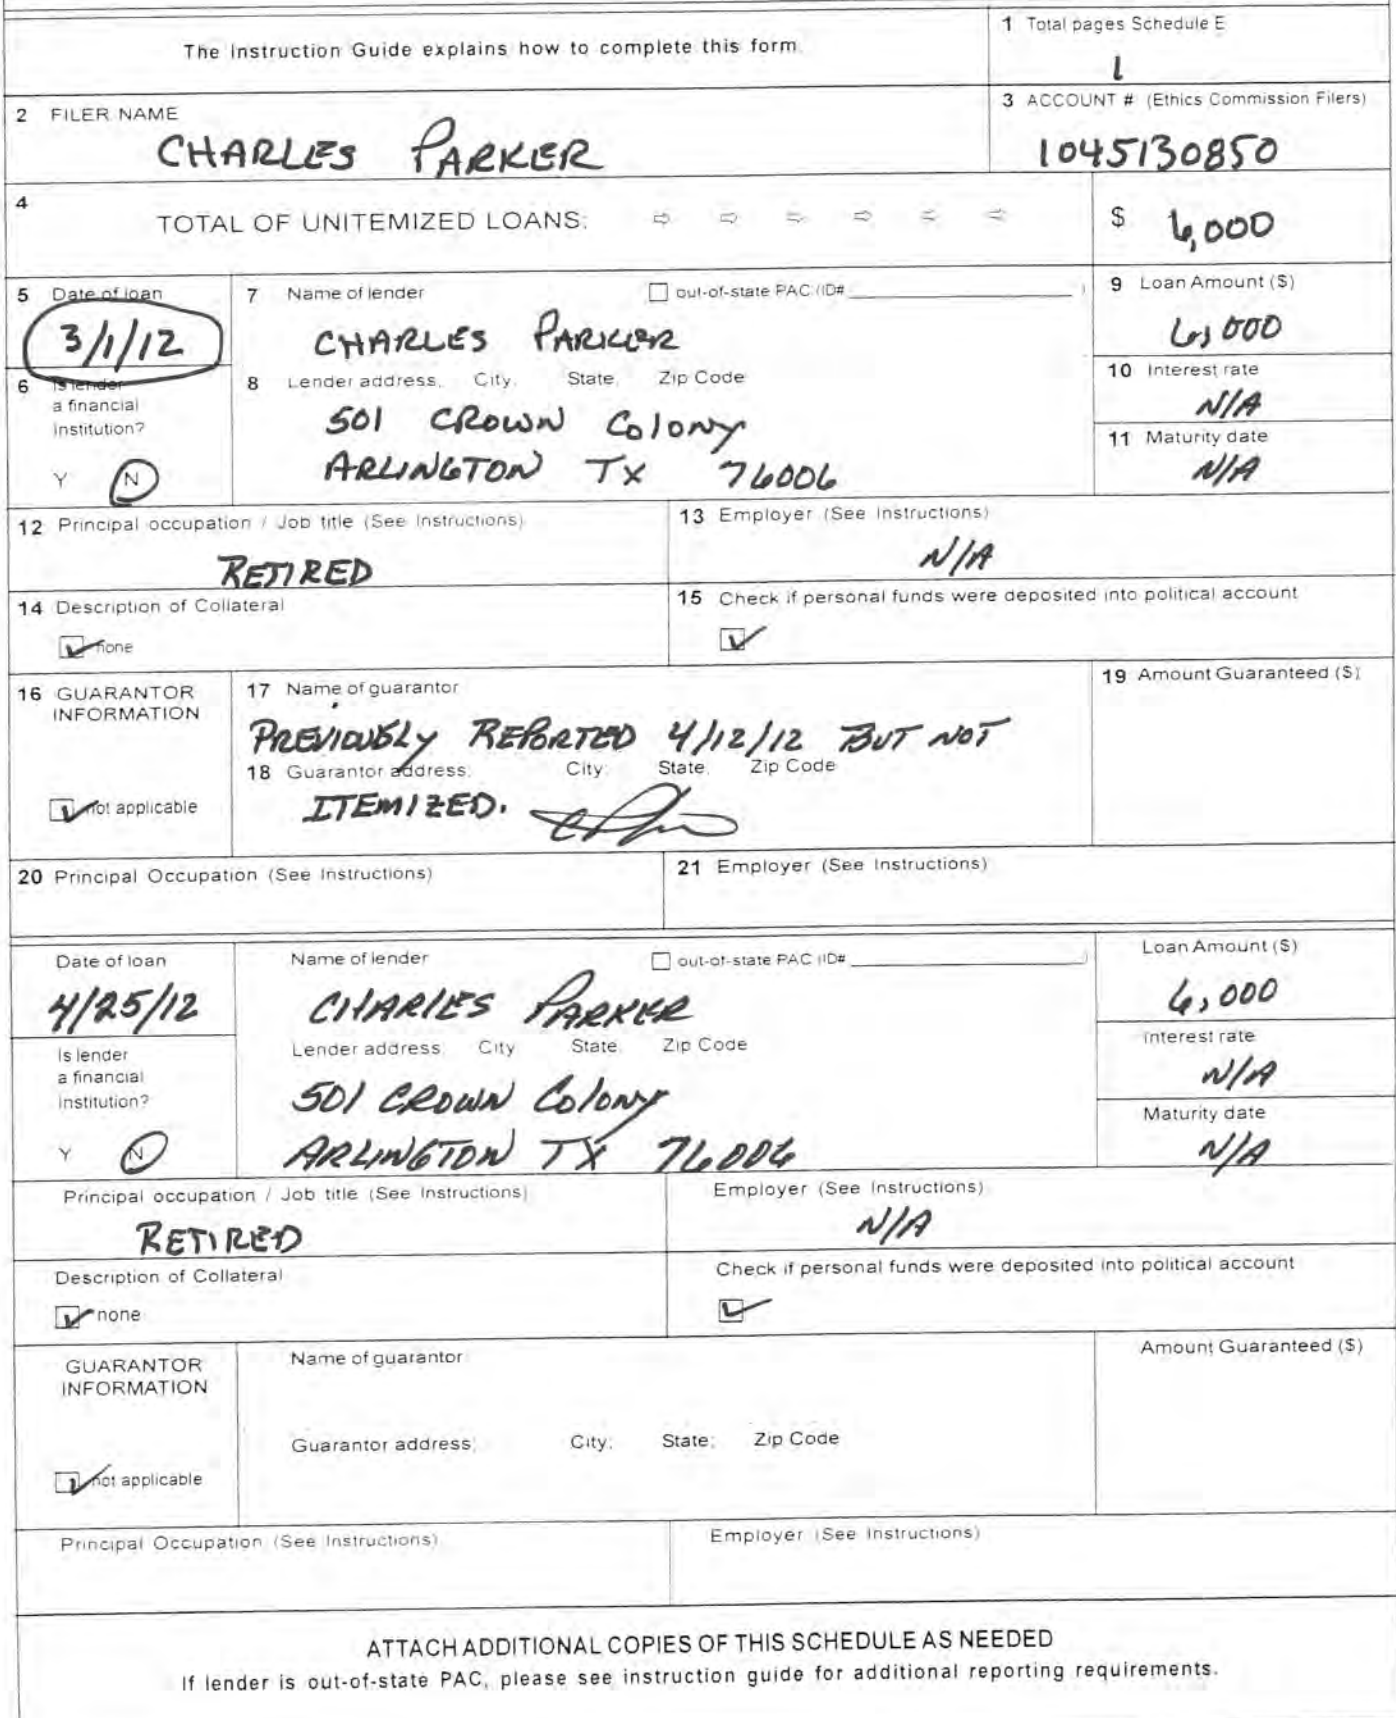 The Instruction Guide explains how to complete this form.
1 Total pages Schedule E
1
2 FILER NAME
CHARLES PARKER
3 ACCOUNT # (Ethics Commission Filers)
1045130850
4 TOTAL OF UNITEMIZED LOANS: ⇨ ⇨ ⇨ ⇨ ⇨ ⇨ $ 6,000
5 Date of loan
3/1/12
7 Name of lender ☐ out-of-state PAC (ID# ____________)
CHARLES PARKER
9 Loan Amount ($)
6,000
6 Is lender
a financial
Institution?
Y N
8 Lender address; City; State; Zip Code
501 CROWN Colony
ARLINGTON TX 76006
10 Interest rate
N/A
11 Maturity date
N/A
12 Principal occupation / Job title (See Instructions)
RETIRED
13 Employer (See Instructions)
N/A
14 Description of Collateral
☑ none
15 Check if personal funds were deposited into political account
☑
16 GUARANTOR
INFORMATION
☑ not applicable
17 Name of guarantor
PREVIOUSLY REPORTED 4/12/12 BUT NOT
18 Guarantor address; City; State; Zip Code
ITEMIZED.
19 Amount Guaranteed ($)
20 Principal Occupation (See Instructions)
21 Employer (See Instructions)
Date of loan
4/25/12
Name of lender ☐ out-of-state PAC (ID# ____________)
CHARLES PARKER
Loan Amount ($)
6,000
Is lender
a financial
Institution?
Y N
Lender address; City; State; Zip Code
501 CROWN Colony
ARLINGTON TX 76006
Interest rate
N/A
Maturity date
N/A
Principal occupation / Job title (See Instructions)
RETIRED
Employer (See Instructions)
N/A
Description of Collateral
☑ none
Check if personal funds were deposited into political account
☑
GUARANTOR
INFORMATION
☑ not applicable
Name of guarantor
Guarantor address; City; State; Zip Code
Amount Guaranteed ($)
Principal Occupation (See Instructions)
Employer (See Instructions)
ATTACH ADDITIONAL COPIES OF THIS SCHEDULE AS NEEDED
If lender is out-of-state PAC, please see instruction guide for additional reporting requirements.